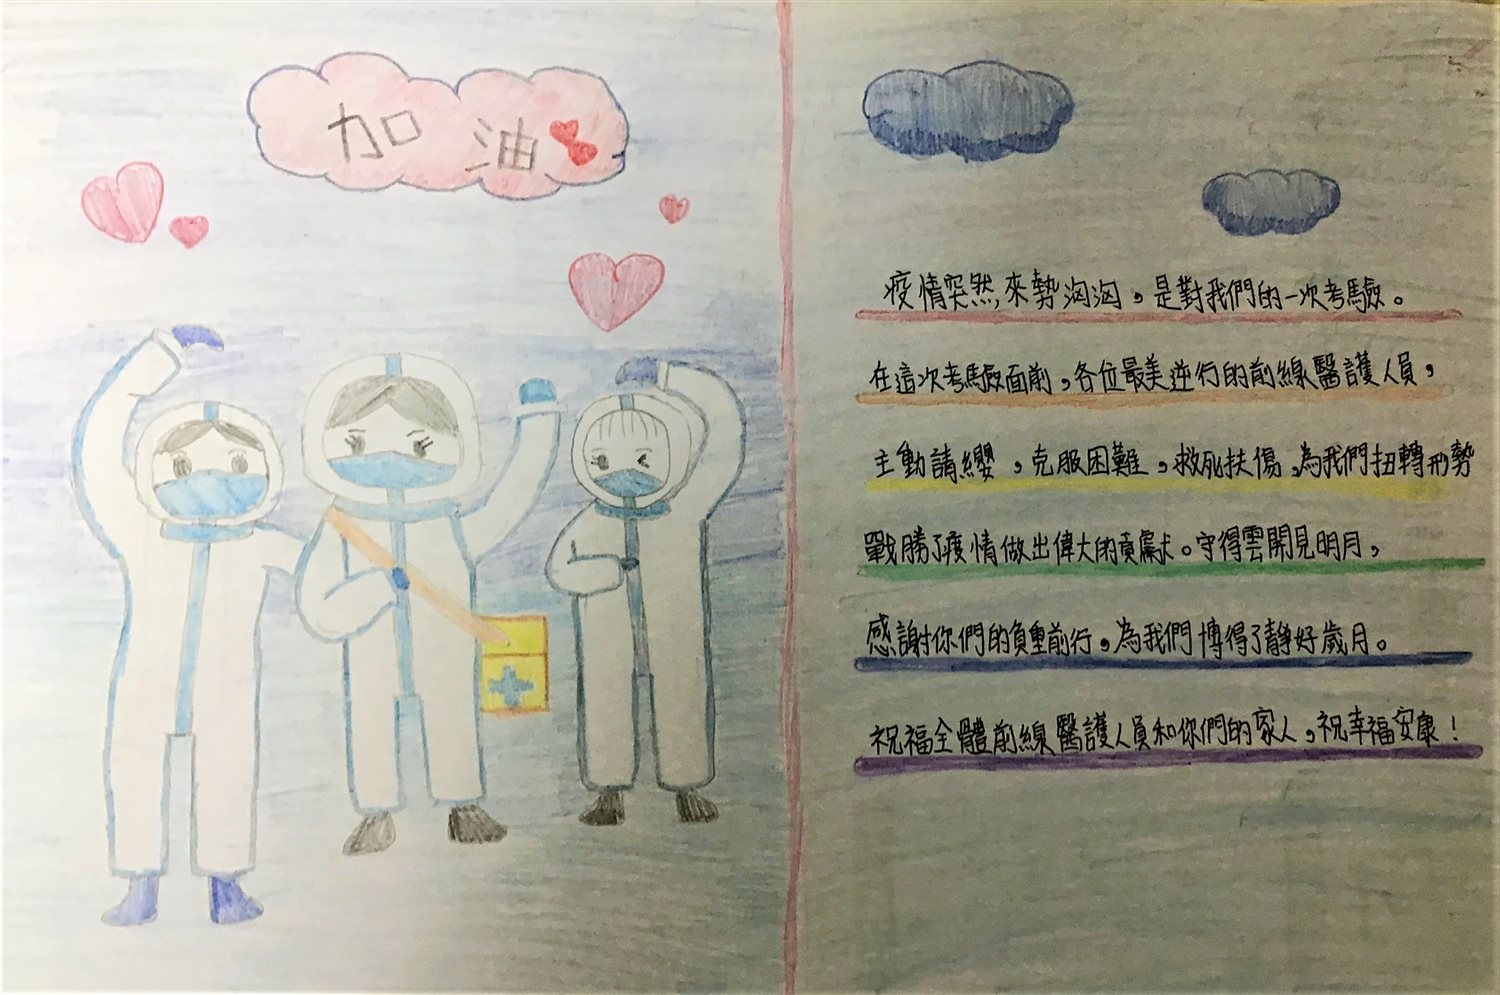 加油
疫情突然,來勢洶洶,是對我們的一次考驗。
在這次考驗面前,各位最美逆行的前線醫護人員,
主動請纓,克服困難,救死扶傷,為我們扭轉形勢
戰勝了疫情做出偉大的貢獻。守得雲開見明月,
感謝你們的負重前行,為我們博得了靜好歲月。
祝福全體前線醫護人員和你們的家人,祝幸福安康!